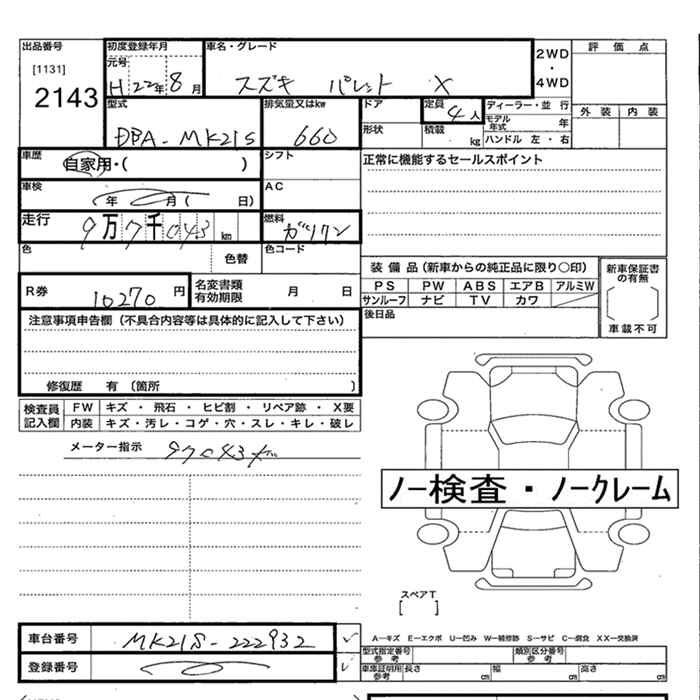 出品番号 初度登録年月 車名・グレード 2WD・4WD 評価点
[1131] 元号
2143 H22年8月 スズキ パレット X
型式 排気量又はkw ドア 定員 4人 ディーラー・並行 外装 内装
DBA-MK21S 660 形状 積載 kg モデル年式 年
ハンドル 左・右
車歴 自家用・( ) シフト 正常に機能するセールスポイント
車検 年 月( 日) AC
走行 9万7千043km 燃料 ガソリン
色 色替 色コード
装備品(新車からの純正品に限り○印) 新車保証書の有無
R券 10270円 名変書類有効期限 月 日 PS PW ABS エアB アルミW
サンルーフ ナビ TV カワ
注意事項申告欄(不具合内容等は具体的に記入して下さい) 後日品 車載不可
修復歴 有 (箇所 )
検査員記入欄 FW キズ・飛石・ヒビ割・リペア跡・X要
内装 キズ・汚レ・コゲ・穴・スレ・キレ・破レ
メーター指示 97043km
ノー検査・ノークレーム
スペアT
[ ]
車台番号 MK21S-222932 A-キズ E-エクボ U-凹み W-補修跡 S-サビ C-腐食 XX-交換済
型式指定番号 参考 類別区分番号 参考
登録番号 車庫証明用 参考 長さ cm 幅 cm 高さ cm